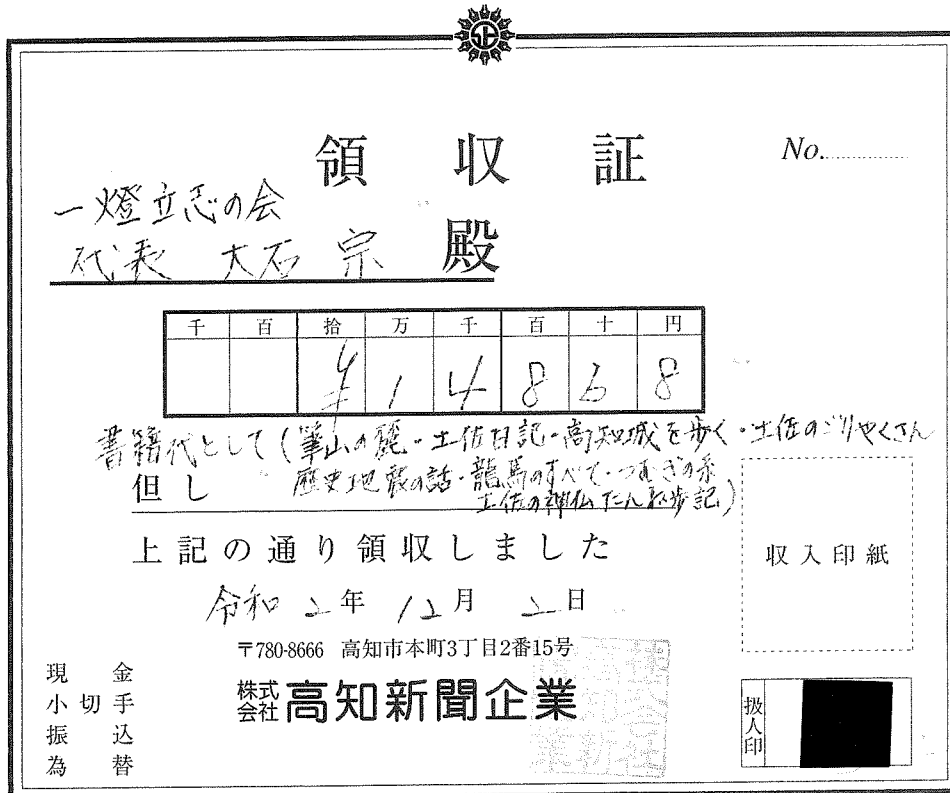 領収証
No.
一燈立志の会
代表 大石 宗 殿
千 百 拾 万 千 百 十 円
¥ 1 4 8 6 8
書籍代として(筆山の麓・土佐日記・高知城を歩く・土佐のごりやくさん
歴史地震の話・龍馬のすべて・つむぎの糸
土佐の神仏たんね歩記)
但し
上記の通り領収しました
収入印紙
令和 2年 12月 2日
〒780-8666 高知市本町3丁目2番15号
株式会社 高知新聞企業
現金
小切手
振込
為替
扱人印